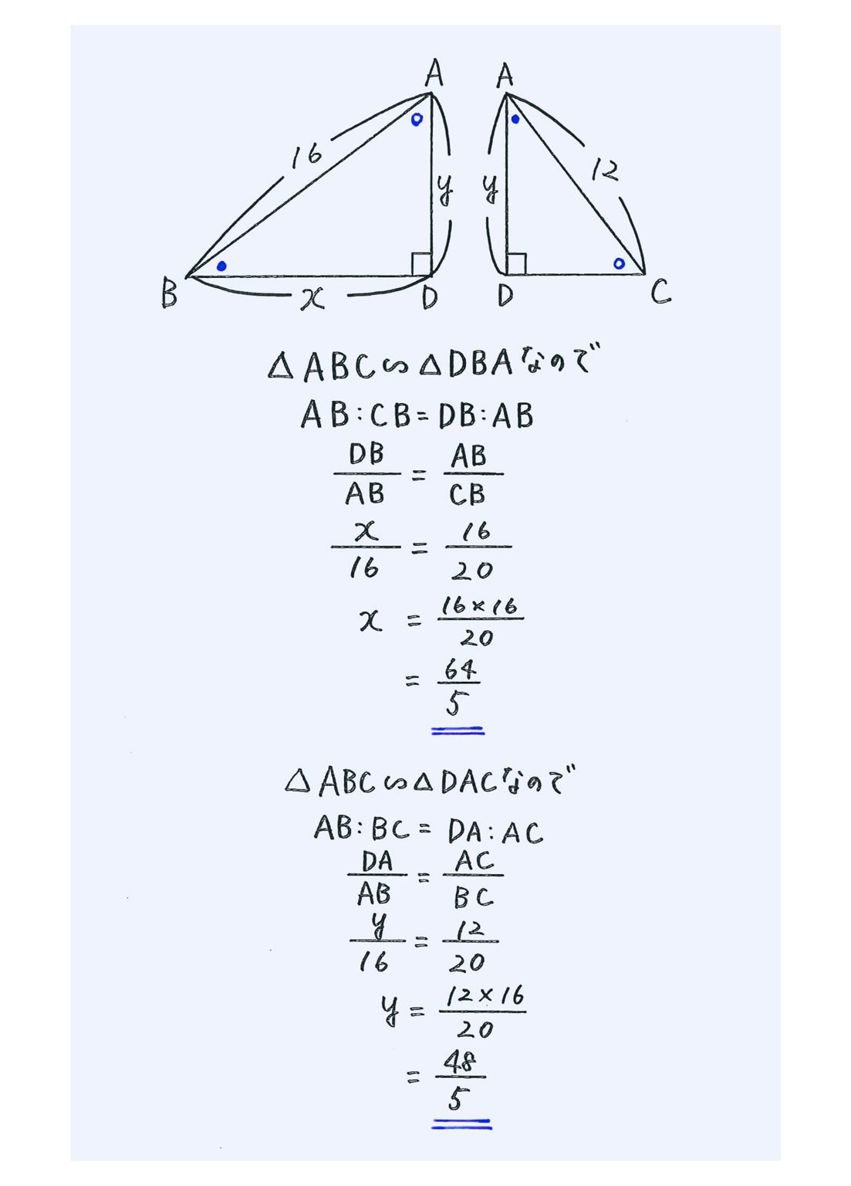 A A
16 y y 12
B x D D C
△ABC∽△DBAなので
AB:CB=DB:AB
DB/AB = AB/CB
x/16 = 16/20
x = 16×16/20
= 64/5
△ABC∽△DACなので
AB:BC=DA:AC
DA/AB = AC/BC
y/16 = 12/20
y = 12×16/20
= 48/5